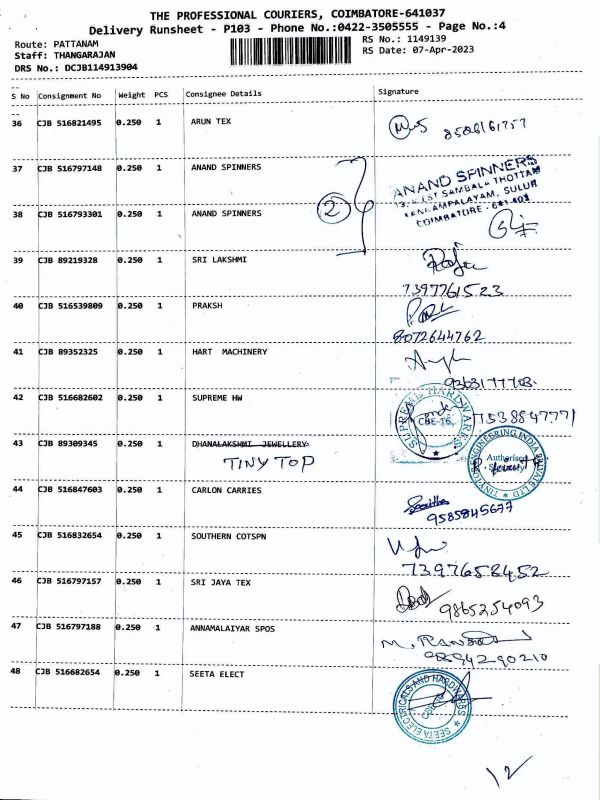 THE PROFESSIONAL COURIERS, COIMBATORE-641037
Delivery Runsheet - P103 - Phone No.:0422-3505555 - Page No.:4
Route: PATTANAM
RS No.: 1149139
Staff: THANGARAJAN
RS Date: 07-Apr-2023
DRS No.: DCJB114913904
S No Consignment No Weight PCS Consignee Details Signature
36 CJB 516821495 0.250 1 ARUN TEX
37 CJB 516797148 0.250 1 ANAND SPINNERS
ANAND SPINNERS
KANNAMPALAYAM, SULUR
COIMBATORE - 641 402
2
38 CJB 516793301 0.250 1 ANAND SPINNERS
39 CJB 89219328 0.250 1 SRI LAKSHMI
7397761523
40 CJB 516539809 0.250 1 PRAKSH
8072644762
41 CJB 89352325 0.250 1 HART MACHINERY
9363177703
42 CJB 516682602 0.250 1 SUPREME HW
SUPREME HARDWARES
CBE-16.
7538847771
43 CJB 89309345 0.250 1 DHANALAKSHMI JEWELLERY
TINY TOP
TINYTOP ENGINEERING INDIA PRIVATE LTD
Authorised
44 CJB 516847603 0.250 1 CARLON CARRIES
9585845677
45 CJB 516832654 0.250 1 SOUTHERN COTSPN
7397658452
46 CJB 516797157 0.250 1 SRI JAYA TEX
9865254093
47 CJB 516797188 0.250 1 ANNAMALAIYAR SPOS
9894290210
48 CJB 516682654 0.250 1 SEETA ELECT
SEETA ELECTRICALS AND HARDWARES
12